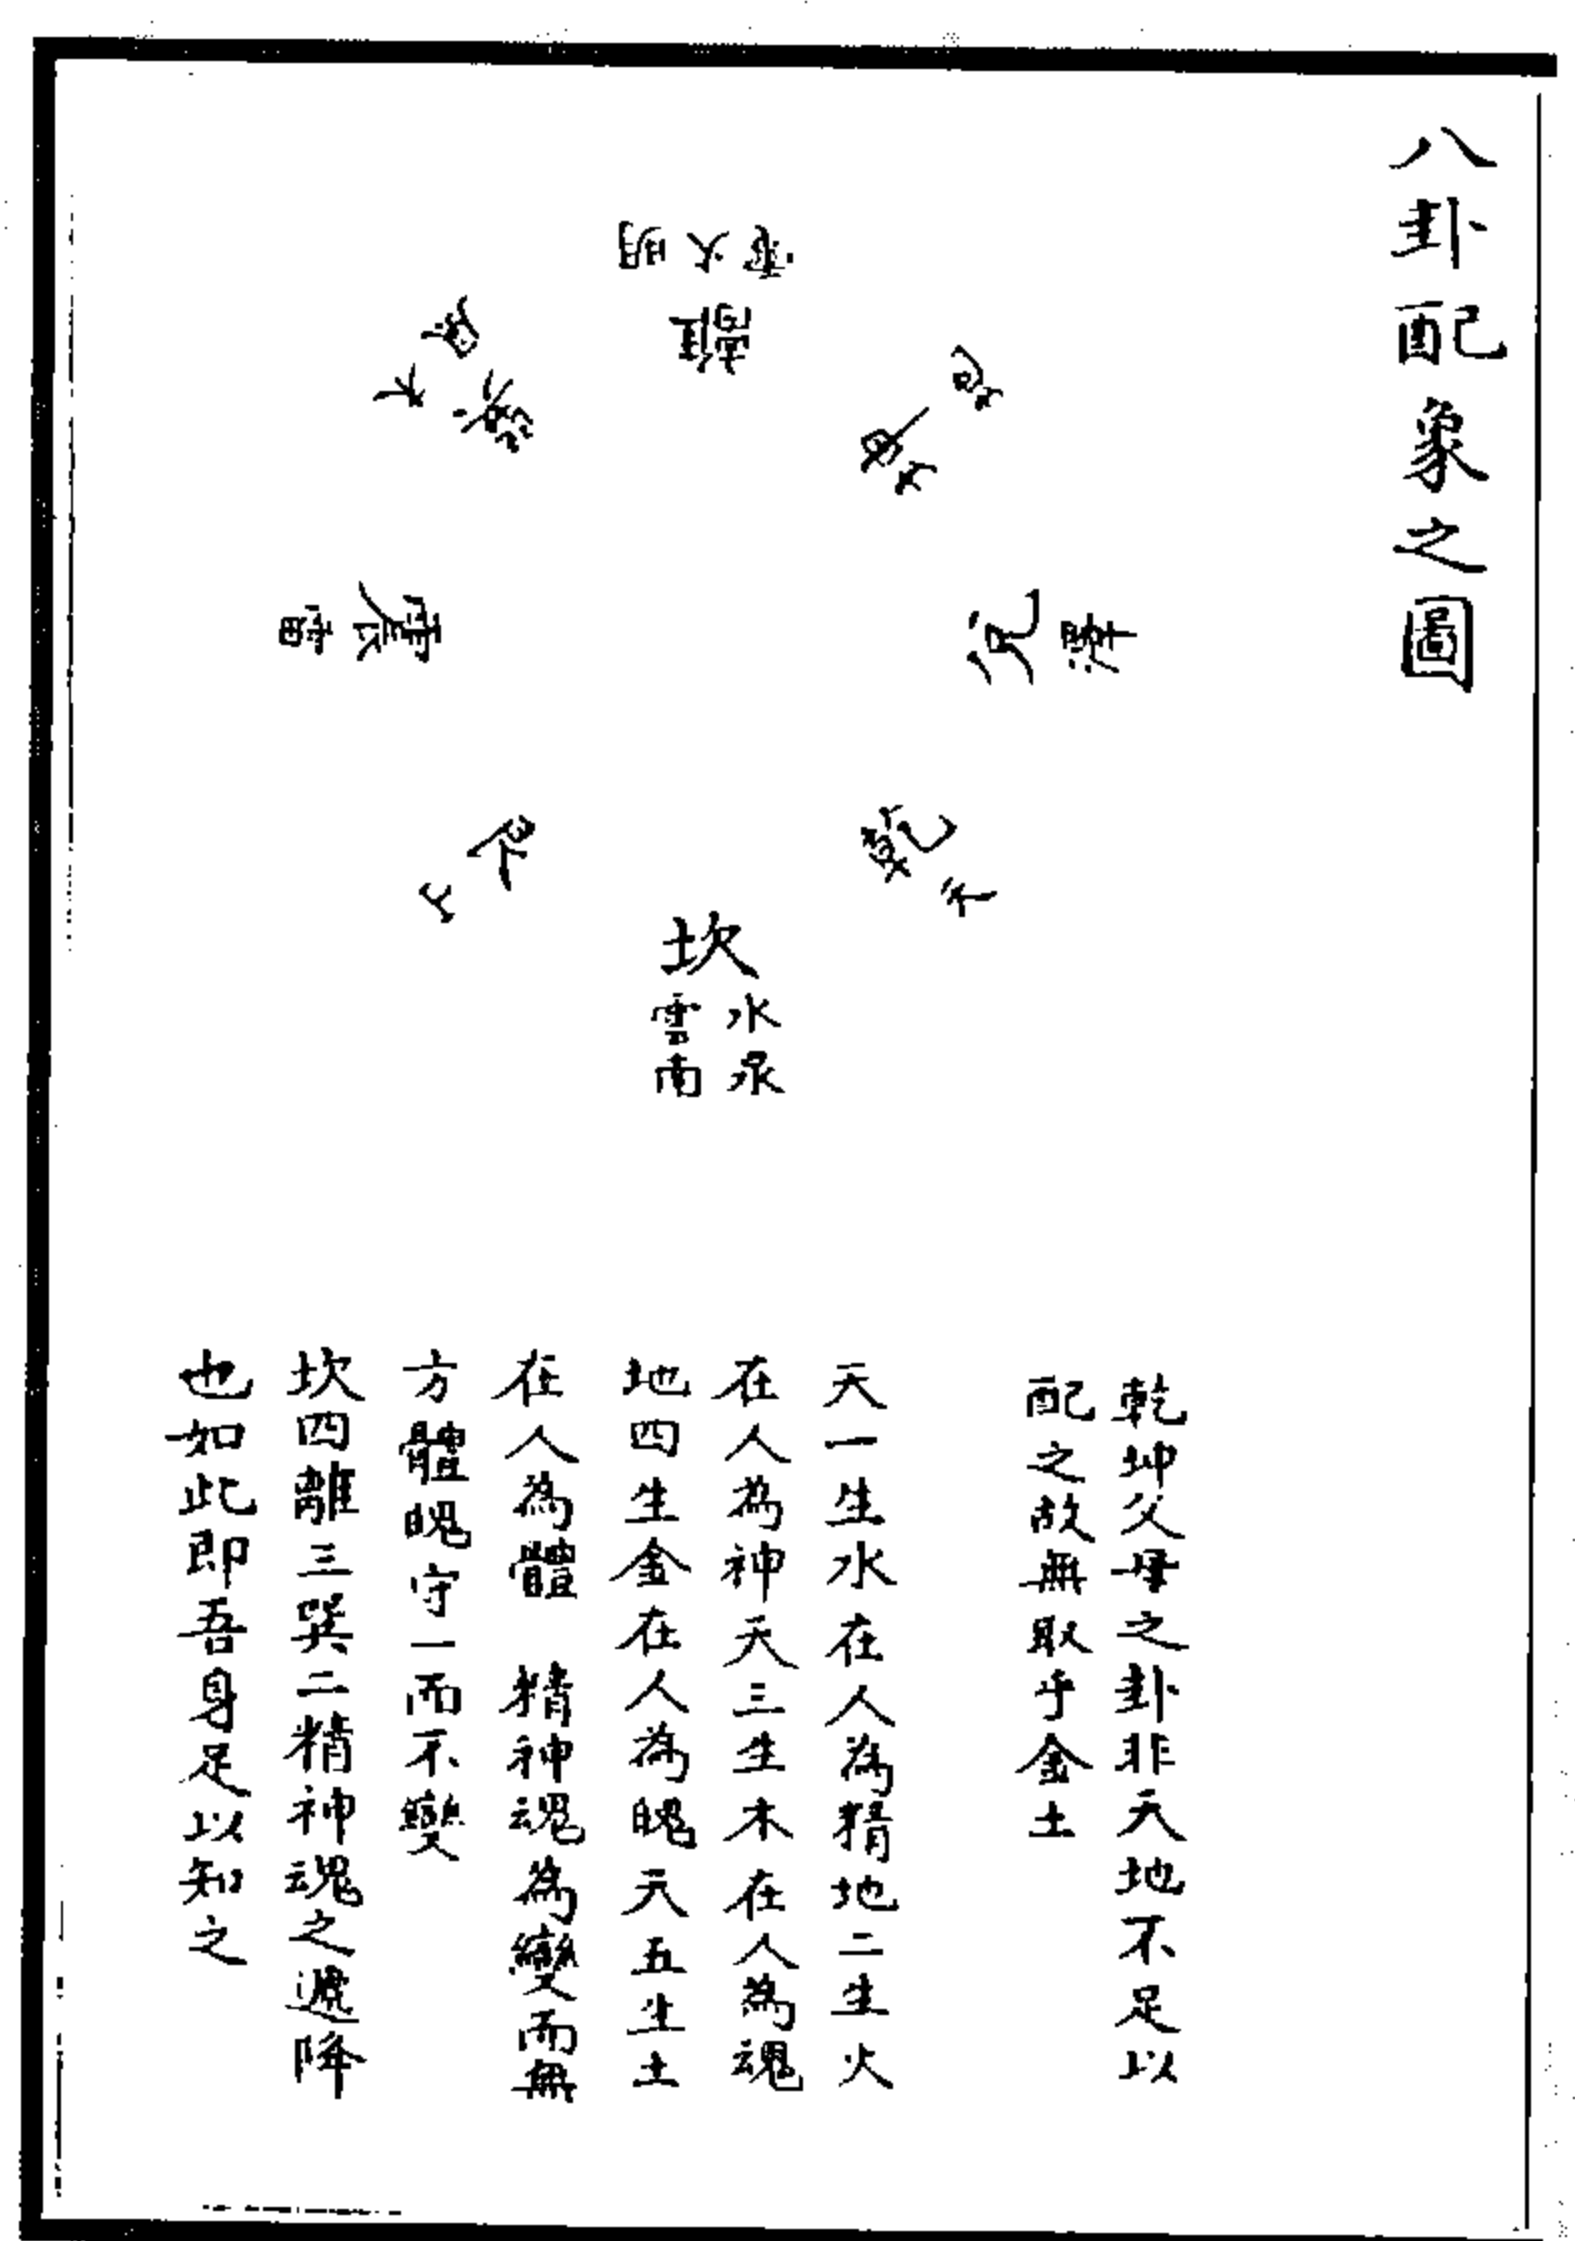 八卦配象之圖
離
電火明
坤
地
兌
澤
乾
天
坎
水泉
雲雨
艮
山
震
雷
巽
木風
乾坤父母之卦非天地不足以
配之故無取乎金土
天一生水在人為精地二生火
在人為神天三生木在人為魂
地四生金在人為魄天五生土
在人為體　精神魂為變而無
方體魄守一而不變
坎四離三巽二精神魂之遞降
也如此即吾身足以知之